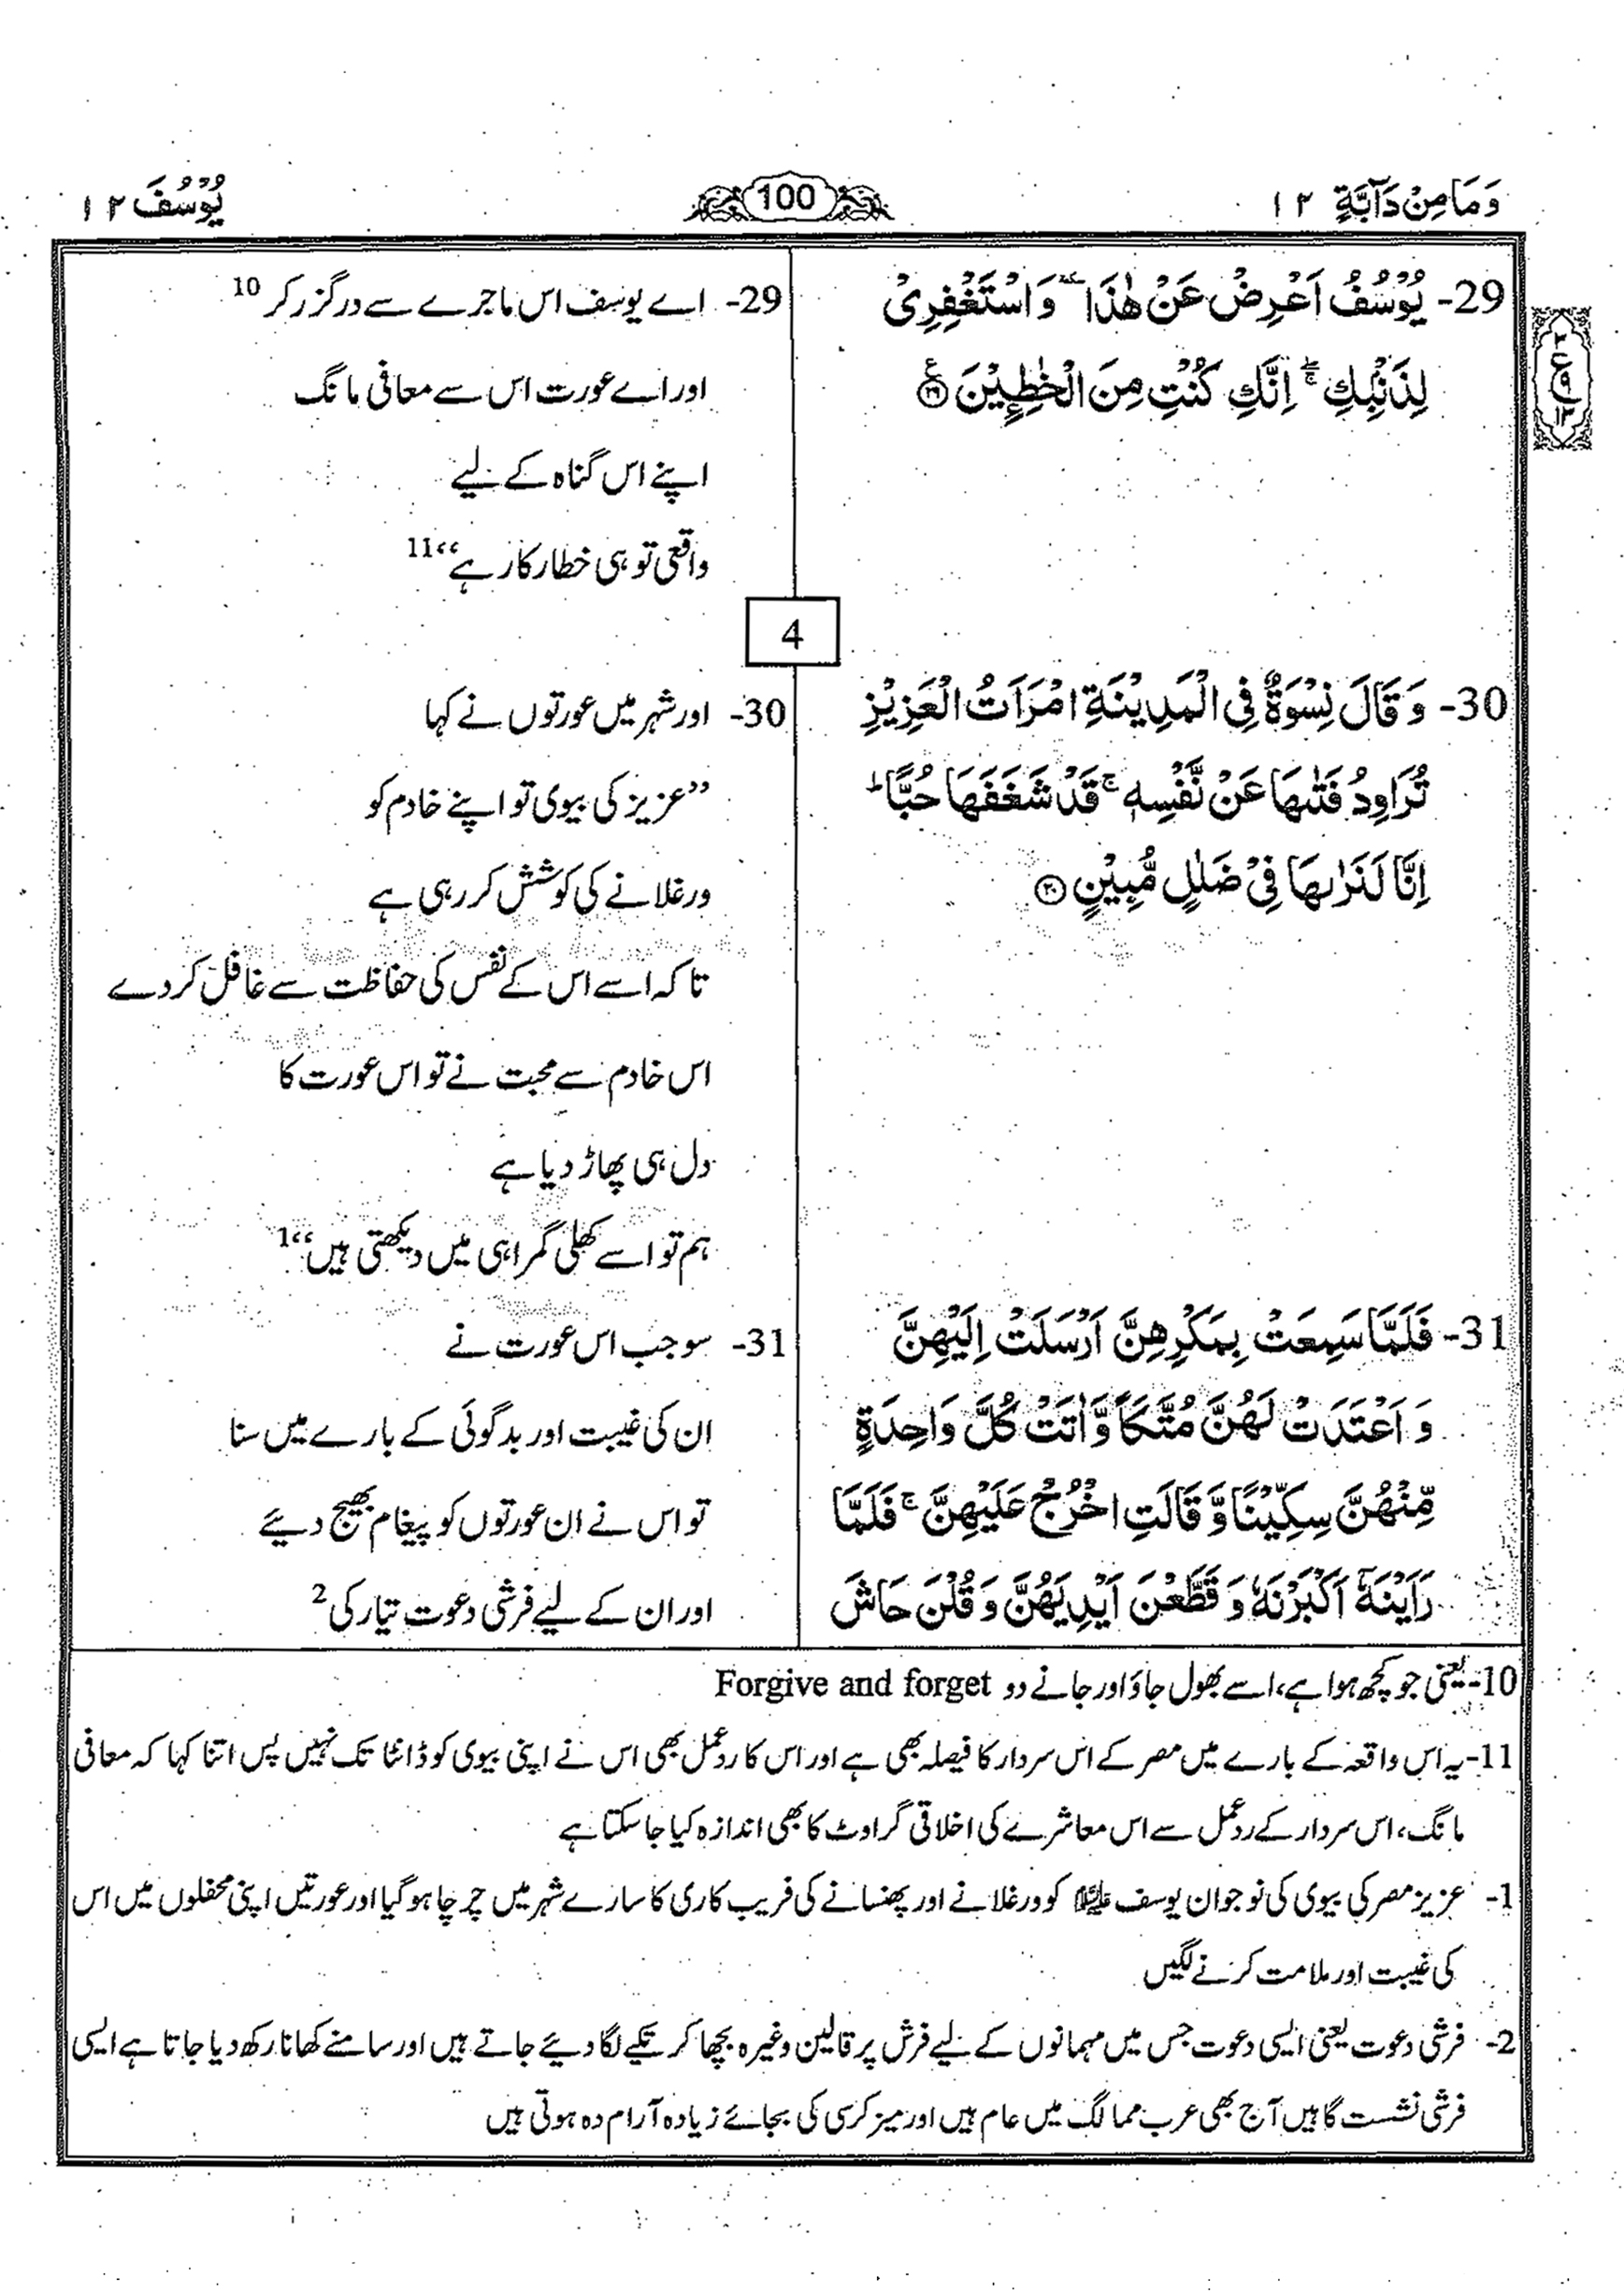 وَمَا مِنْ دَآبَّةٍ ١٢
100
يُوْسُفَ ١٢
29- يُوْسُفُ اَعْرِضْ عَنْ هٰذَا ۫ وَاسْتَغْفِرِیْ
لِذَنْۢبِكِ ۖۚ اِنَّكِ كُنْتِ مِنَ الْخٰطِـِٕیْنَ ﴿٢٩﴾
29- اے یوسف اس ماجرے سے درگزر کر 10
اور اے عورت اس سے معافی مانگ
اپنے اس گناہ کے لیے
واقعی تو ہی خطار کار ہے“11
4
30- وَ قَالَ نِسْوَةٌ فِی الْمَدِیْنَةِ امْرَاَتُ الْعَزِیْزِ
تُرَاوِدُ فَتٰىهَا عَنْ نَّفْسِهٖ ۚ قَدْ شَغَفَهَا حُبًّا ؕ
اِنَّا لَنَرٰىهَا فِیْ ضَلٰلٍ مُّبِیْنٍ ﴿٣٠﴾
30- اور شہر میں عورتوں نے کہا
”عزیز کی بیوی تو اپنے خادم کو
ورغلانے کی کوشش کر رہی ہے
تاکہ اسے اس کے نفس کی حفاظت سے غافل کر دے
اس خادم سے محبت نے تو اس عورت کا
دل ہی پھاڑ دیا ہے
ہم تو اسے کھلی گمراہی میں دیکھتی ہیں“1
31- فَلَمَّا سَمِعَتْ بِمَكْرِهِنَّ اَرْسَلَتْ اِلَیْهِنَّ
وَ اَعْتَدَتْ لَهُنَّ مُتَّكَاً وَّ اٰتَتْ كُلَّ وَاحِدَةٍ
مِّنْهُنَّ سِكِّیْنًا وَّ قَالَتِ اخْرُجْ عَلَیْهِنَّ ۚ فَلَمَّا
رَاَیْنَهٗۤ اَكْبَرْنَهٗ وَ قَطَّعْنَ اَیْدِیَهُنَّ وَ قُلْنَ حَاشَ
31- سو جب اس عورت نے
ان کی غیبت اور بدگوئی کے بارے میں سنا
تو اس نے ان عورتوں کو پیغام بھیج دیئے
اور ان کے لیے فرشی دعوت تیار کی2
10- یعنی جو کچھ ہوا ہے، اسے بھول جاؤ اور جانے دو Forgive and forget
11- یہ اس واقعہ کے بارے میں مصر کے اس سردار کا فیصلہ بھی ہے اور اس کا ردعمل بھی اس نے اپنی بیوی کو ڈانٹا تک نہیں پس اتنا کہا کہ معافی
مانگ، اس سردار کے ردعمل سے اس معاشرے کی اخلاقی گراوٹ کا بھی اندازہ کیا جا سکتا ہے
1- عزیز مصر کی بیوی کی نوجوان یوسف علیہ السلام کو ورغلانے اور پھنسانے کی فریب کاری کا سارے شہر میں چرچا ہو گیا اور عورتیں اپنی محفلوں میں اس
کی غیبت اور ملامت کرنے لگیں
2- فرشی دعوت یعنی ایسی دعوت جس میں مہمانوں کے لیے فرش پر قالین وغیرہ بچھا کر تکیے لگا دیئے جاتے ہیں اور سامنے کھانا رکھ دیا جاتا ہے ایسی
فرشی نشست گاہیں آج بھی عرب ممالک میں عام ہیں اور میز کرسی کی بجائے زیادہ آرام دہ ہوتی ہیں